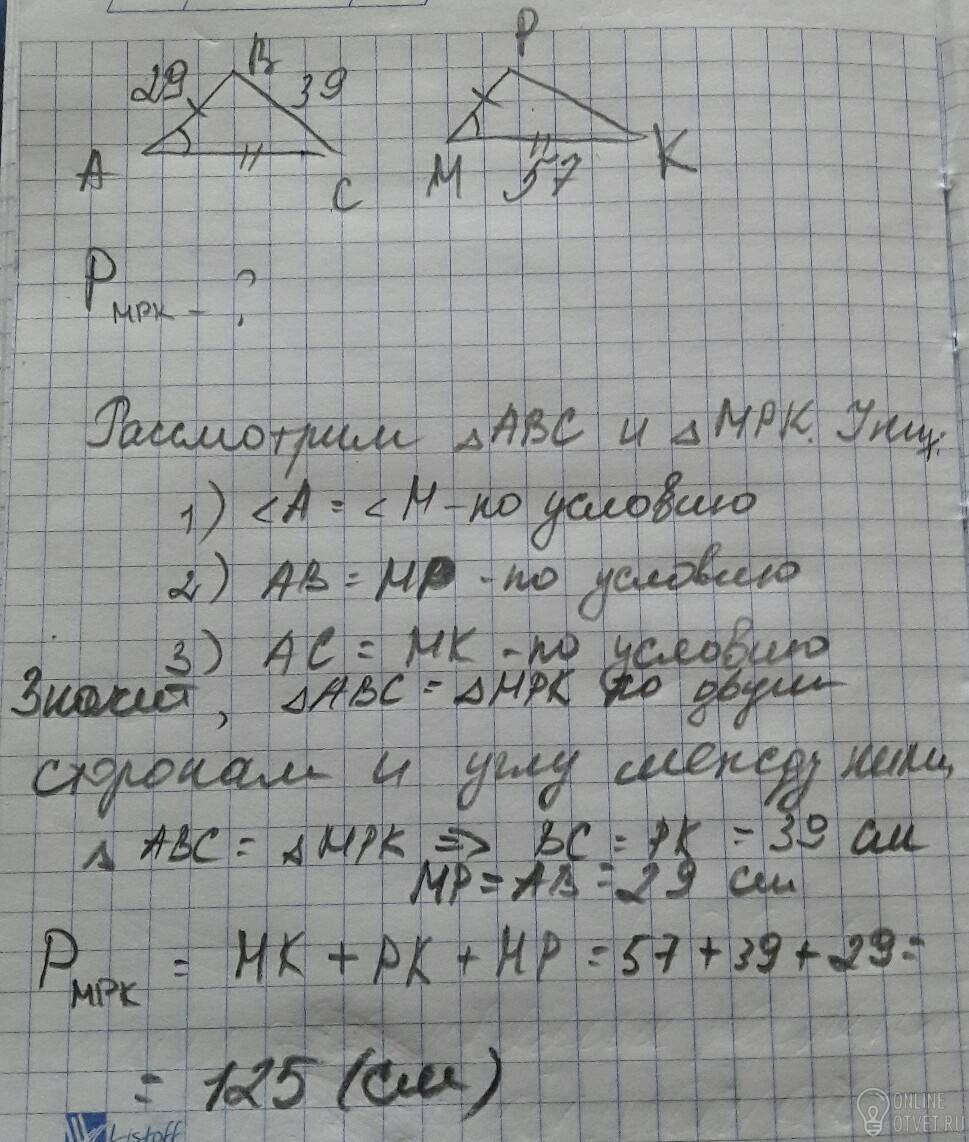 29 B 39 P
A C M 57 K
P MPK - ?
Рассмотрим △ABC и △MPK. У них:
1) <A = <M - по условию
2) AB = MP - по условию
3) AC = MK - по условию
Значит, △ABC = △MPK по двум
сторонам и углу между ними
△ ABC = △MPK => BC = PK = 39 см
MP = AB = 29 см
P MPK = MK + PK + MP = 57 + 39 + 29 =
= 125 (см)
Listoff
ONLINE
OTVET.RU